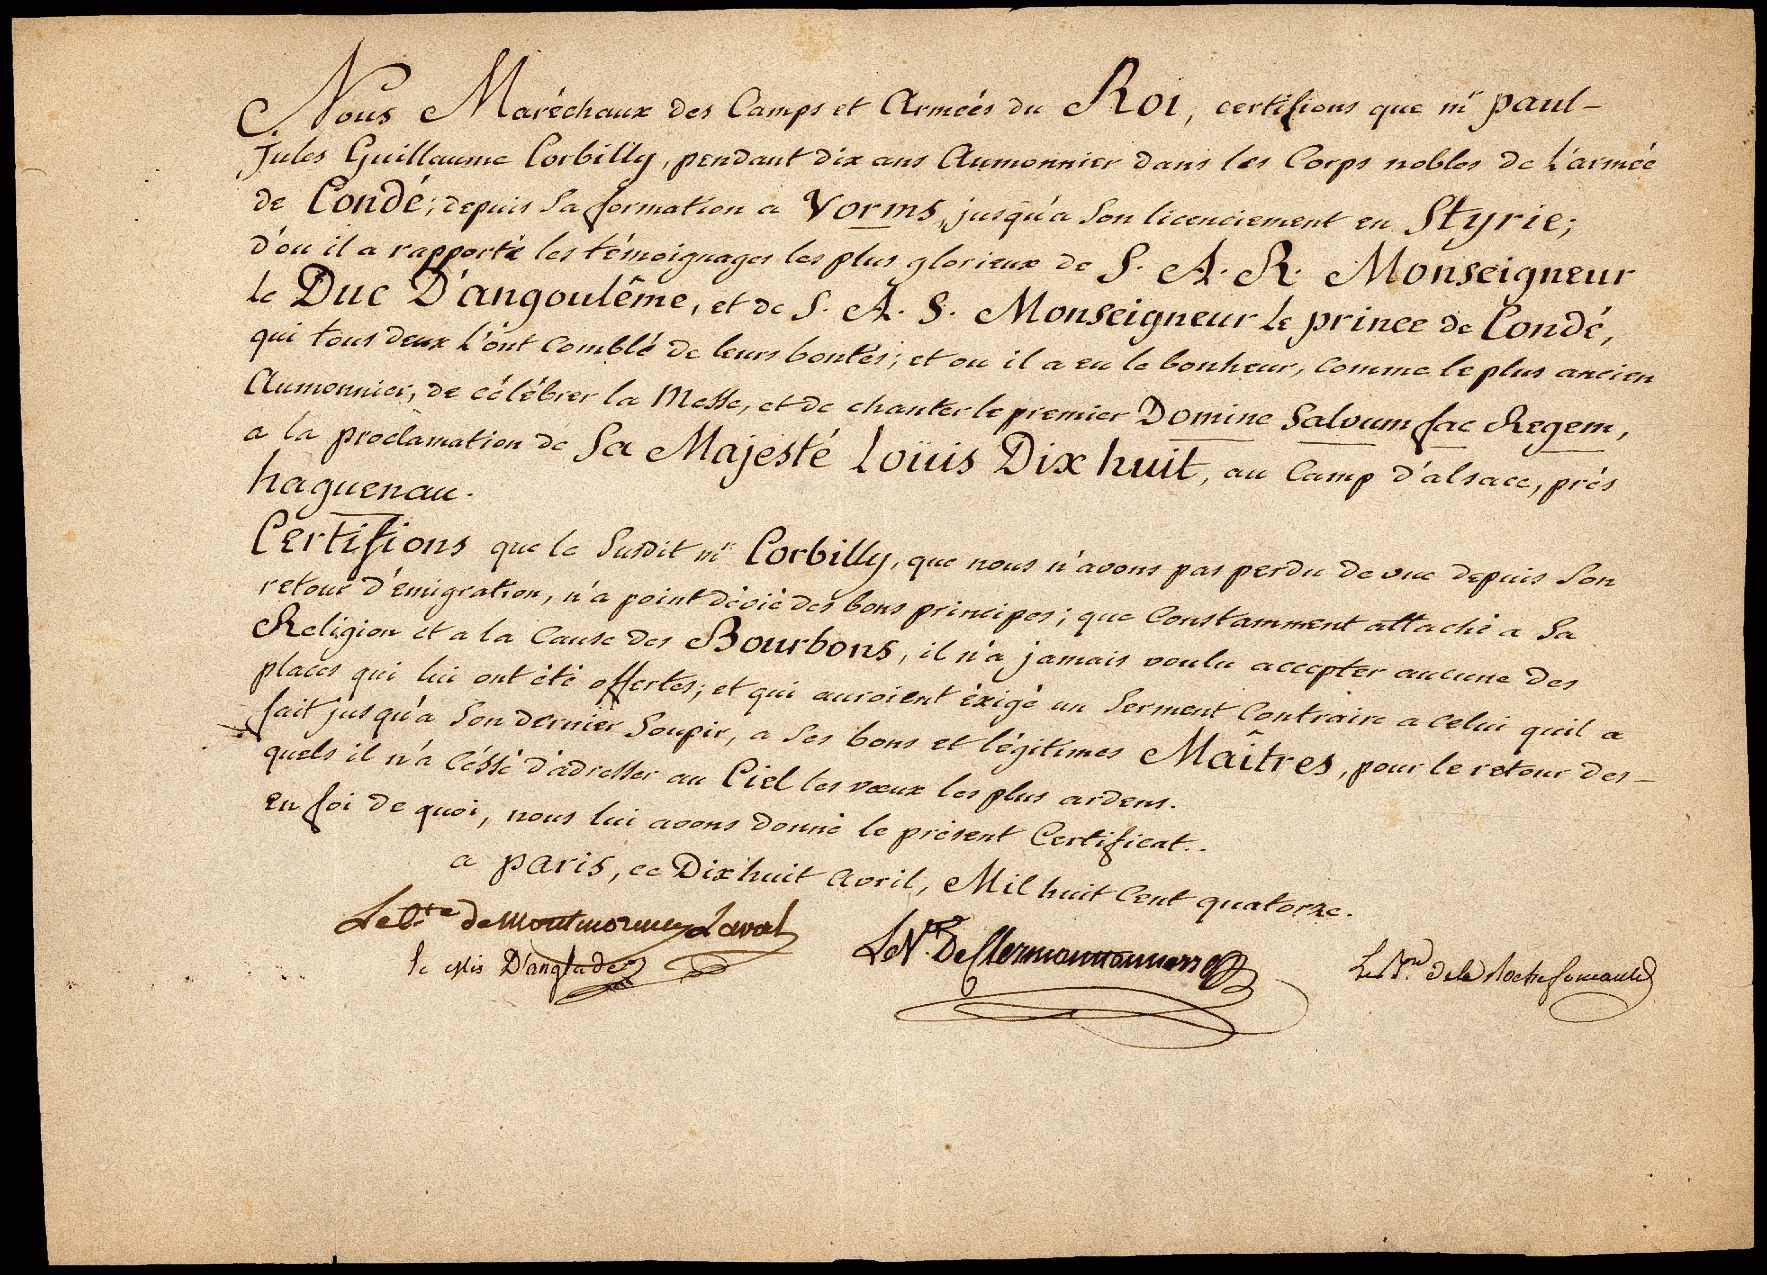 Nous Maréchaux des Camps et Armeés du Roi, certifions que mr paul-
Jules Guillaume Corbilly, pendant dix ans Aumonnier dans les Corps nobles de L'armée
de Condé; depuis sa formation a Vorms, jusqu'a son licenciement en Styrie;
d'ou il a rapporté les témoignages les plus glorieux de S. A. R. Monseigneur
le Duc D'angoulême, et de S. A. S. Monseigneur le prince de Condé,
qui tous deux l'ont comblé de leurs bontés; et ou il a eu le bonheur, comme le plus ancien
Aumonnier, de célébrer la Messe, et de chanter le premier Domine Salvum fac Regem,
a la proclamation de Sa Majesté Loüis Dix huit, au Camp d'alsace, prés
haguenau.
Certifions que le Susdit mr Corbilly, que nous n'avons pas perdu de vue depuis Son
retour d'émigration, n'a point dévié des bons principes; que Constamment attaché a Sa
Religion et a la Cause des Bourbons, il n'a jamais voulu accepter aucune des
places qui lui ont été offertes; et qui auroient éxigé un Serment Contraire a celui quil a
fait jusqu'a Son dernier Soupir, a Ses bons et légitimes Maîtres, pour le retour des-
quels il n'a céssé d'adresser au Ciel les vœux les plus ardens.
en foi de quoi, nous lui avons donné le présent Certificat..
a paris, ce Dix huit avril, Mil huit Cent quatorze.
Le Cte de Montmorency Laval
Le Mis D'anglade
Le Vte De Clermont tonnerre
Le Vte de la Rochefoucauld